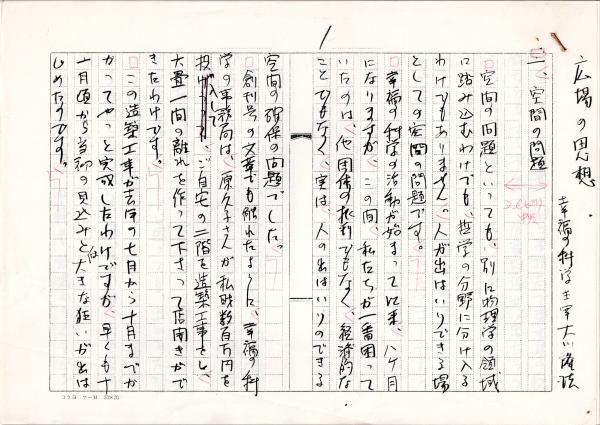 1
広場の思想
幸福の科学主宰 大川隆法
一、空間の問題
空間の問題といっても、別に物理学の領域
に踏み込むわけでも、哲学の分野に分け入る
わけでもありません。人が出はいりできる場
としての空間の問題です。
幸福の科学の活動が始まって以来、八ヶ月
になりますが、この間、私たちが一番困って
いたのは、他団体の批判でもなく、経済的な
ことでもなく、実は、人の出はいりのできる
空間の確保の問題でした。
創刊号の文章でも触れたように、幸福の科
学の事務局は、原久子さんが私財数百万円を
投入し、ご自宅の二階を造築工事をし、
六畳一間の離れを作って下さって店開きがで
きたわけです。
この造築工事が去年の七月から十月までか
かってやっと完成したわけですが、早くも十
一月頃から当初の見込みと大きな狂いが出は
じめたのです。
コクヨ ケ-31 20×20